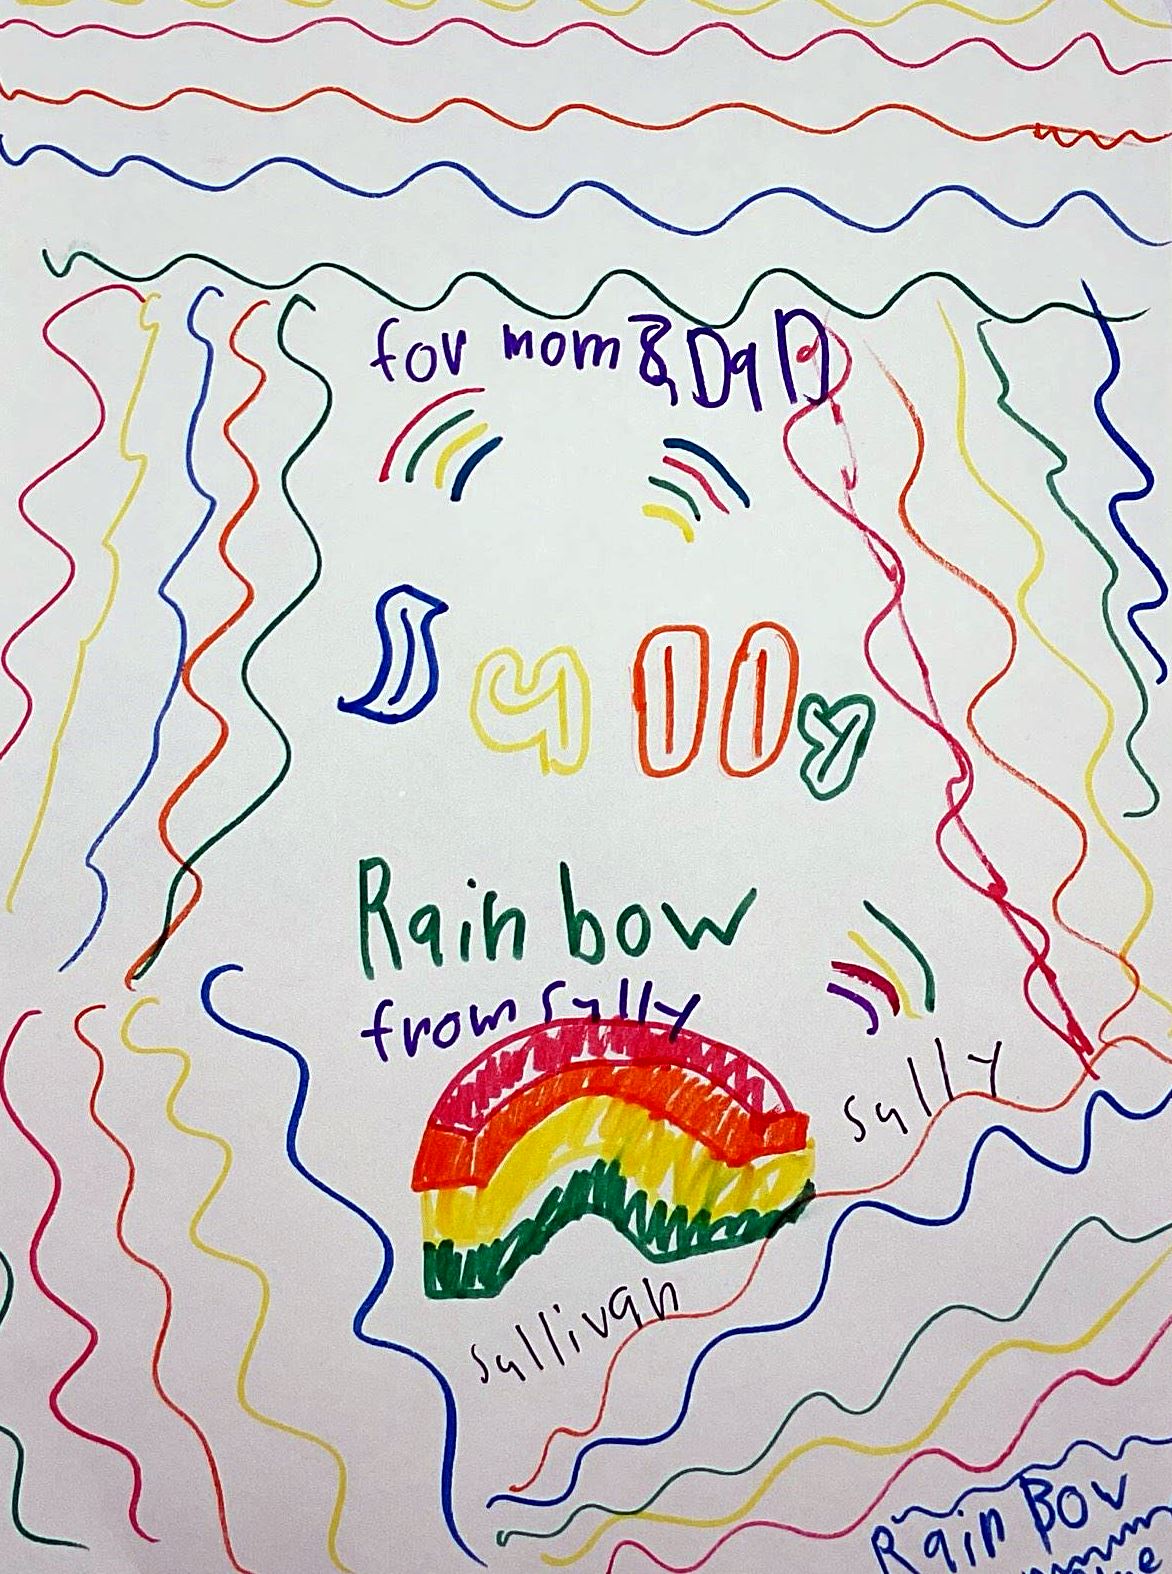 for mom & DaD
Sally
Rain bow
from Sally
Sally
Sallivan
Rain Bov